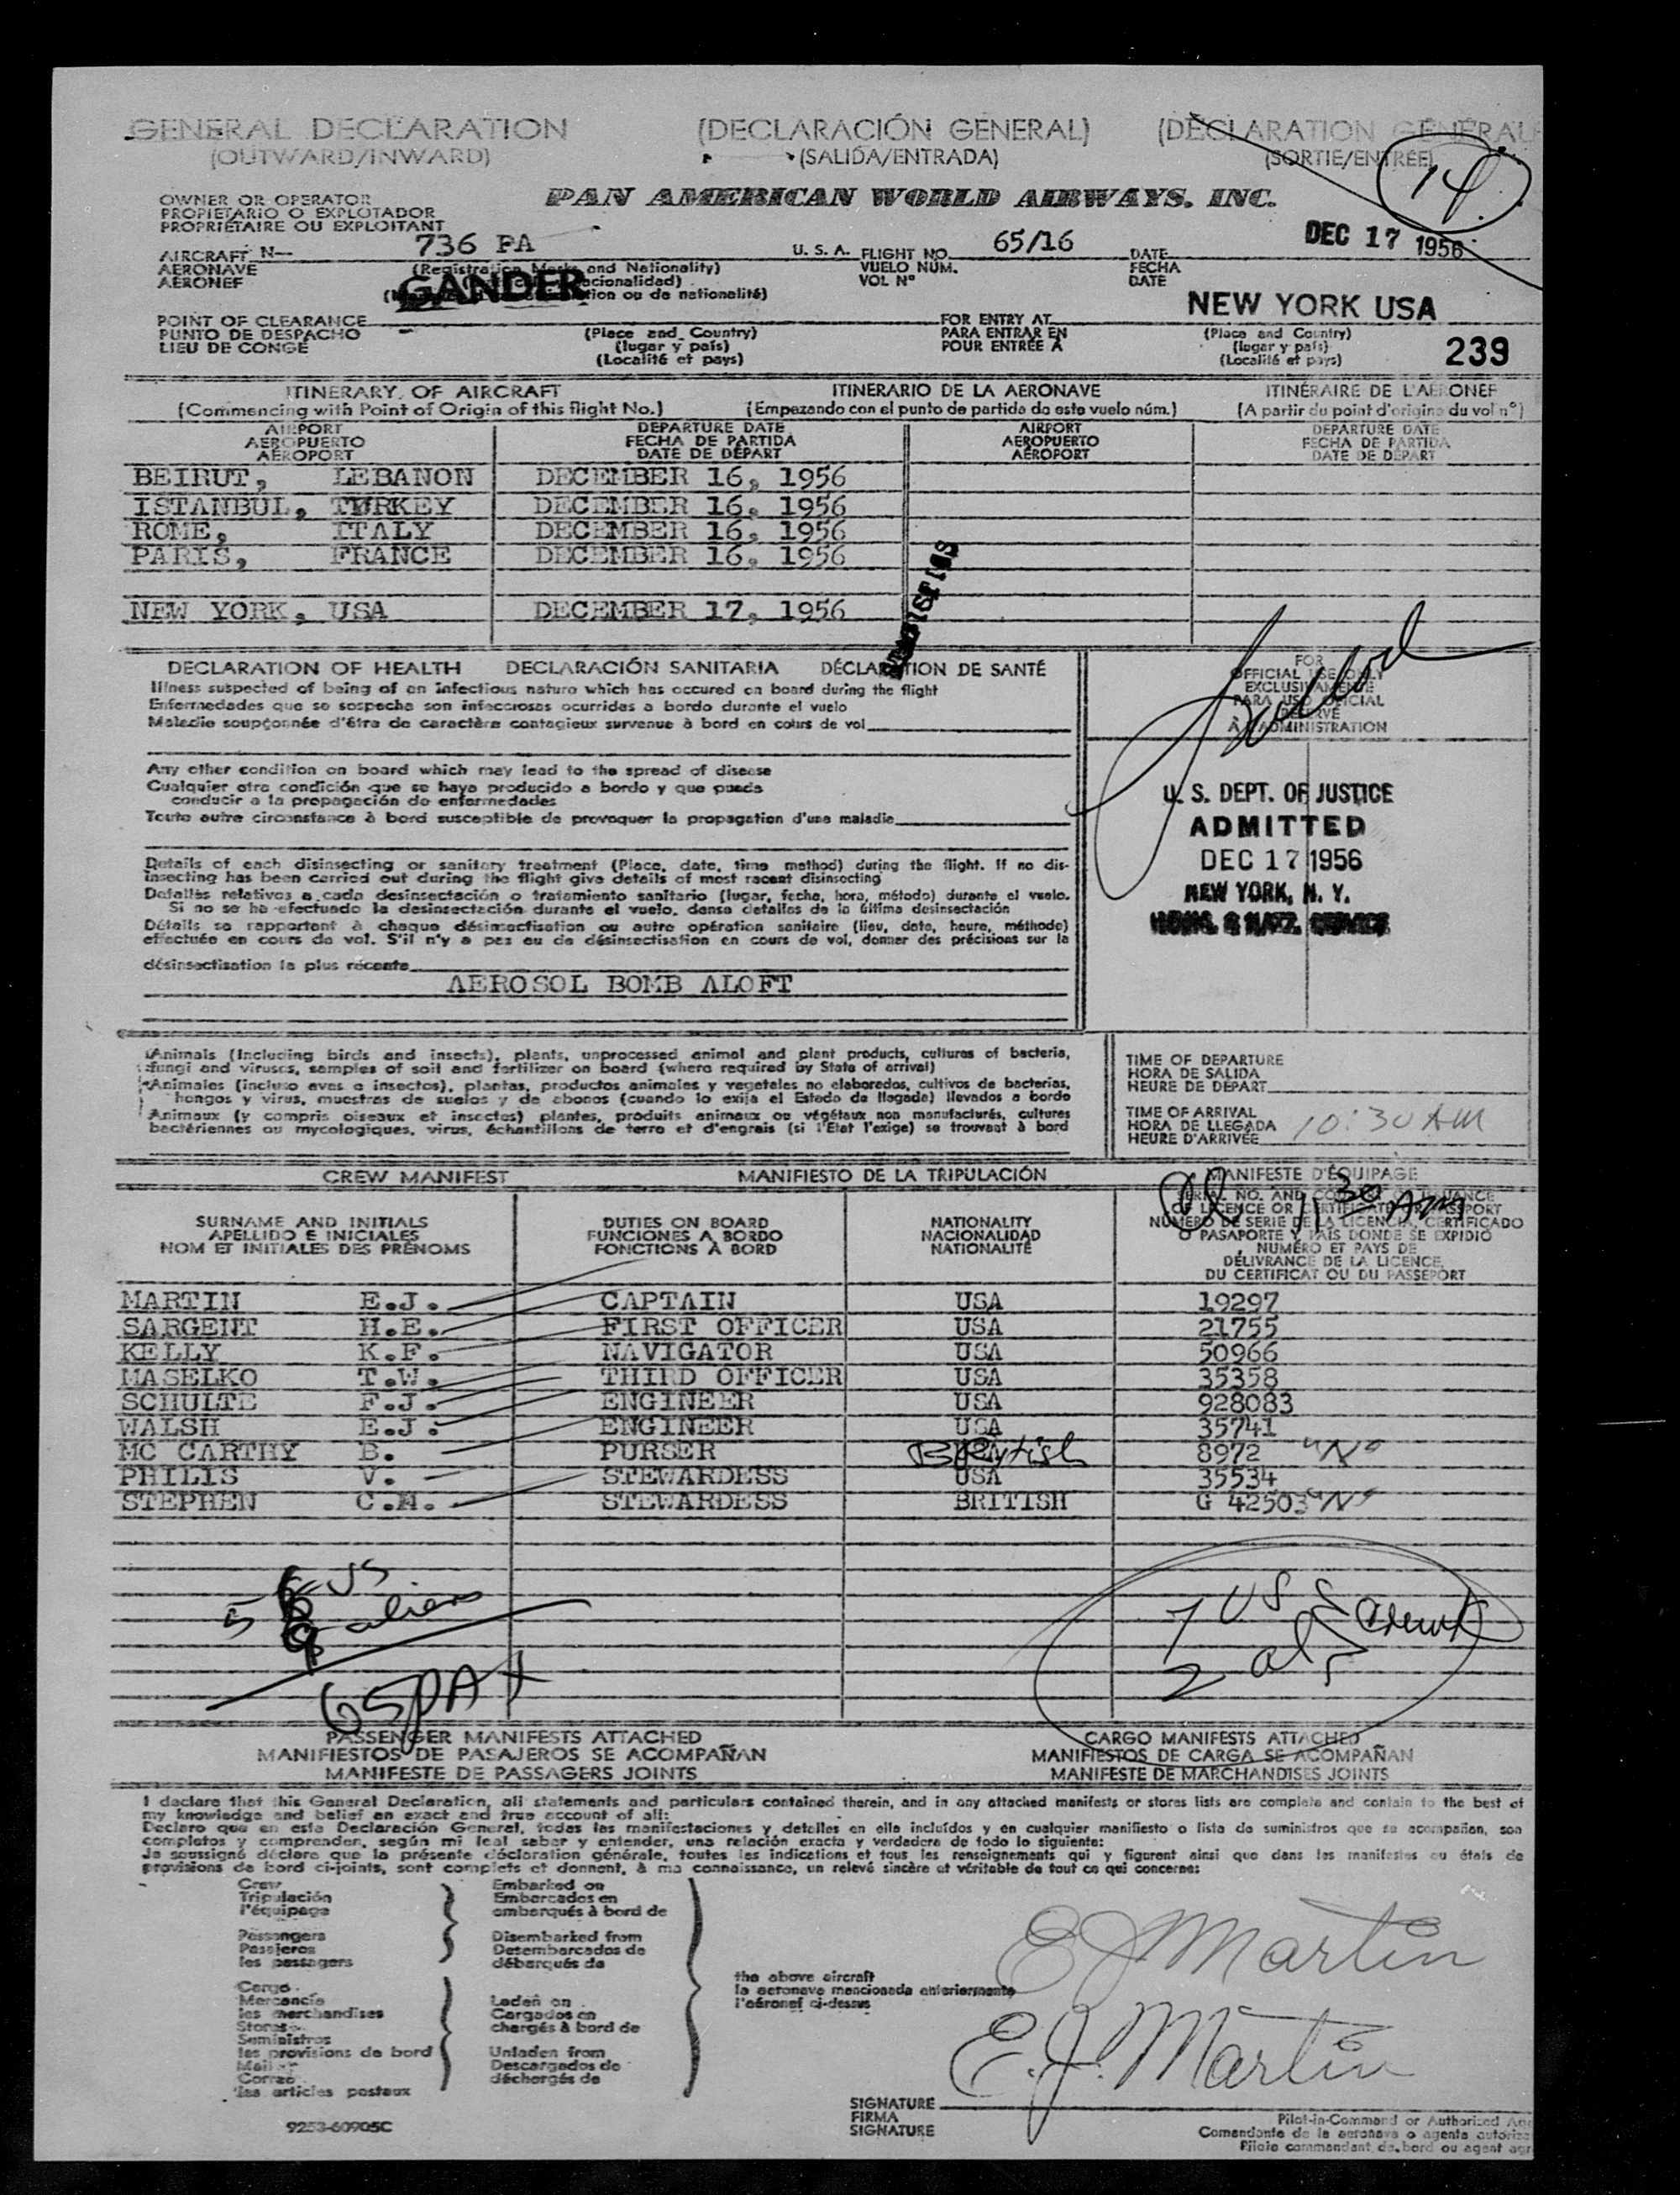 GENERAL DECLARATION (DECLARACIÓN GENERAL) (DÉCLARATION GÉNÉRALE
(OUTWARD/INWARD) (SALIDA/ENTRADA) (SORTIE/ENTRÉE)
14
OWNER OR OPERATOR
PROPIETARIO O EXPLOTADOR
PROPRIÉTAIRE OU EXPLOITANT
PAN AMERICAN WORLD AIRWAYS, INC.
AIRCRAFT N— 736 PA U. S. A. FLIGHT NO. 65/16 DATE DEC 17 1956
AERONAVE (Registration Marks and Nationality) VUELO NÚM. FECHA
AÉRONEF VOL N° DATE
GANDER
tion ou de nationalité)
NEW YORK USA
POINT OF CLEARANCE FOR ENTRY AT
PUNTO DE DESPACHO (Place and Country) PARA ENTRAR EN (Place and Country)
LIEU DE CONGÉ (lugar y país) POUR ENTRÉE À (lugar y país)
(Localité et pays) (Localité et pays)
239
ITINERARY OF AIRCRAFT ITINERARIO DE LA AERONAVE ITINÉRAIRE DE L'AÉRONEF
(Commencing with Point of Origin of this flight No.) (Empezando con el punto de partida de este vuelo núm.) (A partir du point d'origine du vol n°)
AIRPORT DEPARTURE DATE AIRPORT DEPARTURE DATE
AEROPUERTO FECHA DE PARTIDA AEROPUERTO FECHA DE PARTIDA
AÉROPORT DATE DE DÉPART AÉROPORT DATE DE DÉPART
BEIRUT, LEBANON DECEMBER 16, 1956
ISTANBUL, TURKEY DECEMBER 16, 1956
ROME, ITALY DECEMBER 16, 1956
PARIS, FRANCE DECEMBER 16, 1956
NEW YORK, USA DECEMBER 17, 1956
DECLARATION OF HEALTH DECLARACIÓN SANITARIA DÉCLARATION DE SANTÉ
Illness suspected of being of an infectious nature which has occured on board during the flight
Enfermedades que se sospecha son infecciosas ocurridas a bordo durante el vuelo
Maladie soupçonnée d'être de caractère contagieux survenue à bord en cours de vol
FOR
OFFICIAL USE ONLY
EXCLUSIVAMENTE
PARA USO OFICIAL
RÉSERVÉ
À L'ADMINISTRATION
Any other condition on board which may lead to the spread of disease
Cualquier otra condición que se haya producido a bordo y que pueda
conducir a la propagación de enfermedades
Toute autre circonstance à bord susceptible de provoquer la propagation d'une maladie
U. S. DEPT. OF JUSTICE
ADMITTED
DEC 17 1956
NEW YORK, N. Y.
Details of each disinsecting or sanitary treatment (Place, date, time method) during the flight. If no dis-
insecting has been carried out during the flight give details of most recent disinsecting
Detalles relativos a cada desinsectación o tratamiento sanitario (lugar, fecha, hora, método) durante el vuelo.
Si no se ha efectuado la desinsectación durante el vuelo, danse detalles de la última desinsectación
Détails se rapportant à chaque désinsectisation ou autre opération sanitaire (lieu, date, heure, méthode)
effectuée en cours de vol. S'il n'y a pas eu de désinsectisation en cours de vol, donner des précisions sur la
désinsectisation la plus récente
AEROSOL BOMB ALOFT
Animals (Including birds and insects), plants, unprocessed animal and plant products, cultures of bacteria,
fungi and viruses, samples of soil and fertilizer on board (where required by State of arrival)
Animales (incluso aves e insectos), plantas, productos animales y vegetales no elaborados, cultivos de bacterias,
hongos y virus, muestras de suelos y de abonos (cuando lo exija el Estado de llegada) llevados a bordo
Animaux (y compris oiseaux et insectes) plantes, produits animaux ou végétaux non manufacturés, cultures
bactériennes ou mycologiques, virus, échantillons de terre et d'engrais (si l'État l'exige) se trouvant à bord
TIME OF DEPARTURE
HORA DE SALIDA
HEURE DE DÉPART
TIME OF ARRIVAL
HORA DE LLEGADA 10:30 AM
HEURE D'ARRIVÉE
CREW MANIFEST MANIFIESTO DE LA TRIPULACIÓN MANIFESTE D'ÉQUIPAGE
11 30 AM
SURNAME AND INITIALS DUTIES ON BOARD NATIONALITY SERIAL NO. AND COUNTRY OF ISSUANCE
APELLIDO E INICIALES FUNCIONES A BORDO NACIONALIDAD OF LICENCE OR CERTIFICATE OR PASSPORT
NOM ET INITIALES DES PRÉNOMS FONCTIONS À BORD NATIONALITÉ NÚMERO DE SERIE DE LA LICENCIA, CERTIFICADO
O PASAPORTE Y PAÍS DONDE SE EXPIDIÓ
NUMÉRO ET PAYS DE
DÉLIVRANCE DE LA LICENCE,
DU CERTIFICAT OU DU PASSEPORT
MARTIN E.J. CAPTAIN USA 19297
SARGENT H.E. FIRST OFFICER USA 21755
KELLY K.F. NAVIGATOR USA 50966
MASELKO T.W. THIRD OFFICER USA 35358
SCHULTE F.J. ENGINEER USA 928083
WALSH E.J. ENGINEER USA 35741
MC CARTHY B. PURSER British 8972 "N"
PHILIS V. STEWARDESS USA 35534
STEPHEN C.M. STEWARDESS BRITISH G 42503 "N"
US
5 aliens
65 PAX
7 US
2 als
Crew
PASSENGER MANIFESTS ATTACHED CARGO MANIFESTS ATTACHED
MANIFIESTOS DE PASAJEROS SE ACOMPAÑAN MANIFIESTOS DE CARGA SE ACOMPAÑAN
MANIFESTE DE PASSAGERS JOINTS MANIFESTE DE MARCHANDISES JOINTS
I declare that this General Declaration, all statements and particulars contained therein, and in any attached manifests or stores lists are complete and contain to the best of
my knowledge and belief an exact and true account of all:
Declaro que en esta Declaración General, todas las manifestaciones y detalles en ella incluidos y en cualquier manifiesto o lista de suministros que se acompañan, son
completos y comprenden, según mi leal saber y entender, una relación exacta y verdadera de todo lo siguiente:
Je soussigné déclare que la présente déclaration générale, toutes les indications et tous les renseignements qui y figurent ainsi que dans les manifestes ou états de
provisions de bord ci-joints, sont complets et donnent, à ma connaissance, un relevé sincère et véritable de tout ce qui concerne:
Crew Embarked on
Tripulación Embarcados en
l'équipage embarqués à bord de
Passengers Disembarked from
Pasajeros Desembarcados de
les passagers débarqués de
the above aircraft
la aeronave mencionada anteriormente
l'aéronef ci-dessus
Cargo
Mercancía Laden on
les marchandises Cargados en
Stores chargés à bord de
Suministros
les provisions de bord Unladen from
Mail Descargados de
Correo déchargés de
les articles postaux
EJ Martin
E.J. Martin
9253-60905C
SIGNATURE
FIRMA
SIGNATURE
Pilot-in-Command or Authorized Age
Comandante de la aeronave o agente autoriza
Pilote commandant de bord ou agent agr